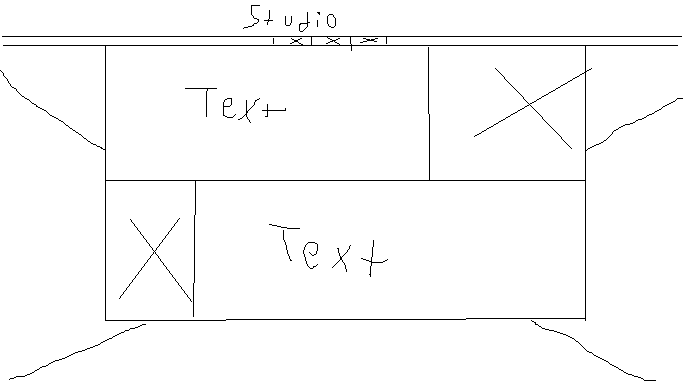 Studio
Text
Text